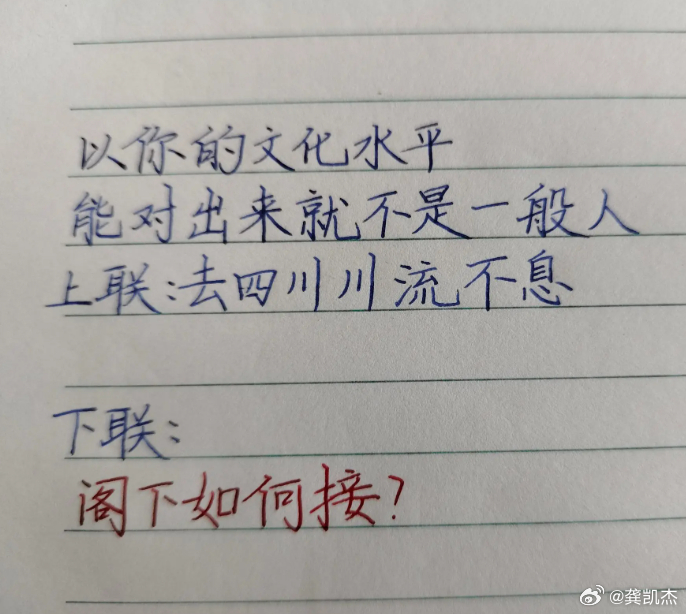 以你的文化水平
能对出来就不是一般人
上联:去四川川流不息
下联:
阁下如何接?
@龚凯杰